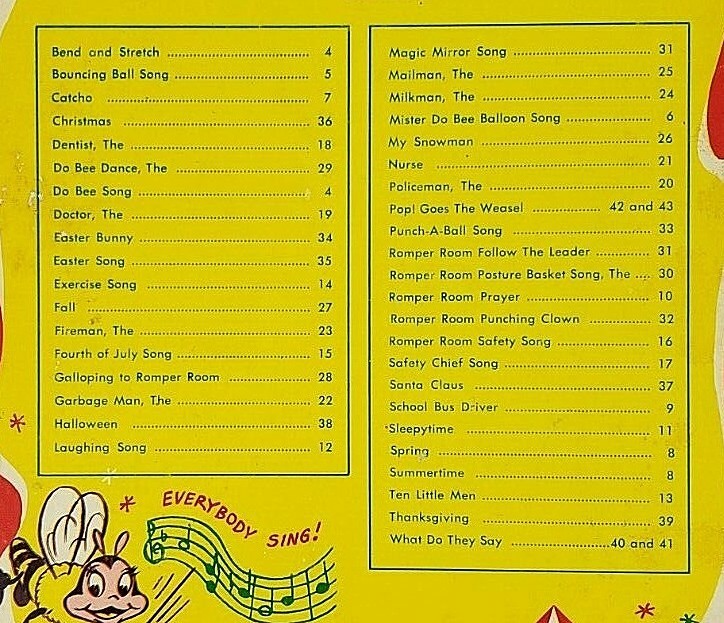 Bend and Stretch .......... 4
Bouncing Ball Song .......... 5
Catcho .......... 7
Christmas .......... 36
Dentist, The .......... 18
Do Bee Dance, The .......... 29
Do Bee Song .......... 4
Doctor, The .......... 19
Easter Bunny .......... 34
Easter Song .......... 35
Exercise Song .......... 14
Fall .......... 27
Fireman, The .......... 23
Fourth of July Song .......... 15
Galloping to Romper Room .......... 28
Garbage Man, The .......... 22
Halloween .......... 38
Laughing Song .......... 12
Magic Mirror Song .......... 31
Mailman, The .......... 25
Milkman, The .......... 24
Mister Do Bee Balloon Song .......... 6
My Snowman .......... 26
Nurse .......... 21
Policeman, The .......... 20
Pop! Goes The Weasel .......... 42 and 43
Punch-A-Ball Song .......... 33
Romper Room Follow The Leader .......... 31
Romper Room Posture Basket Song, The .... 30
Romper Room Prayer .......... 10
Romper Room Punching Clown .......... 32
Romper Room Safety Song .......... 16
Safety Chief Song .......... 17
Santa Claus .......... 37
School Bus Driver .......... 9
Sleepytime .......... 11
Spring .......... 8
Summertime .......... 8
Ten Little Men .......... 13
Thanksgiving .......... 39
What Do They Say .......... 40 and 41
EVERYBODY SING!